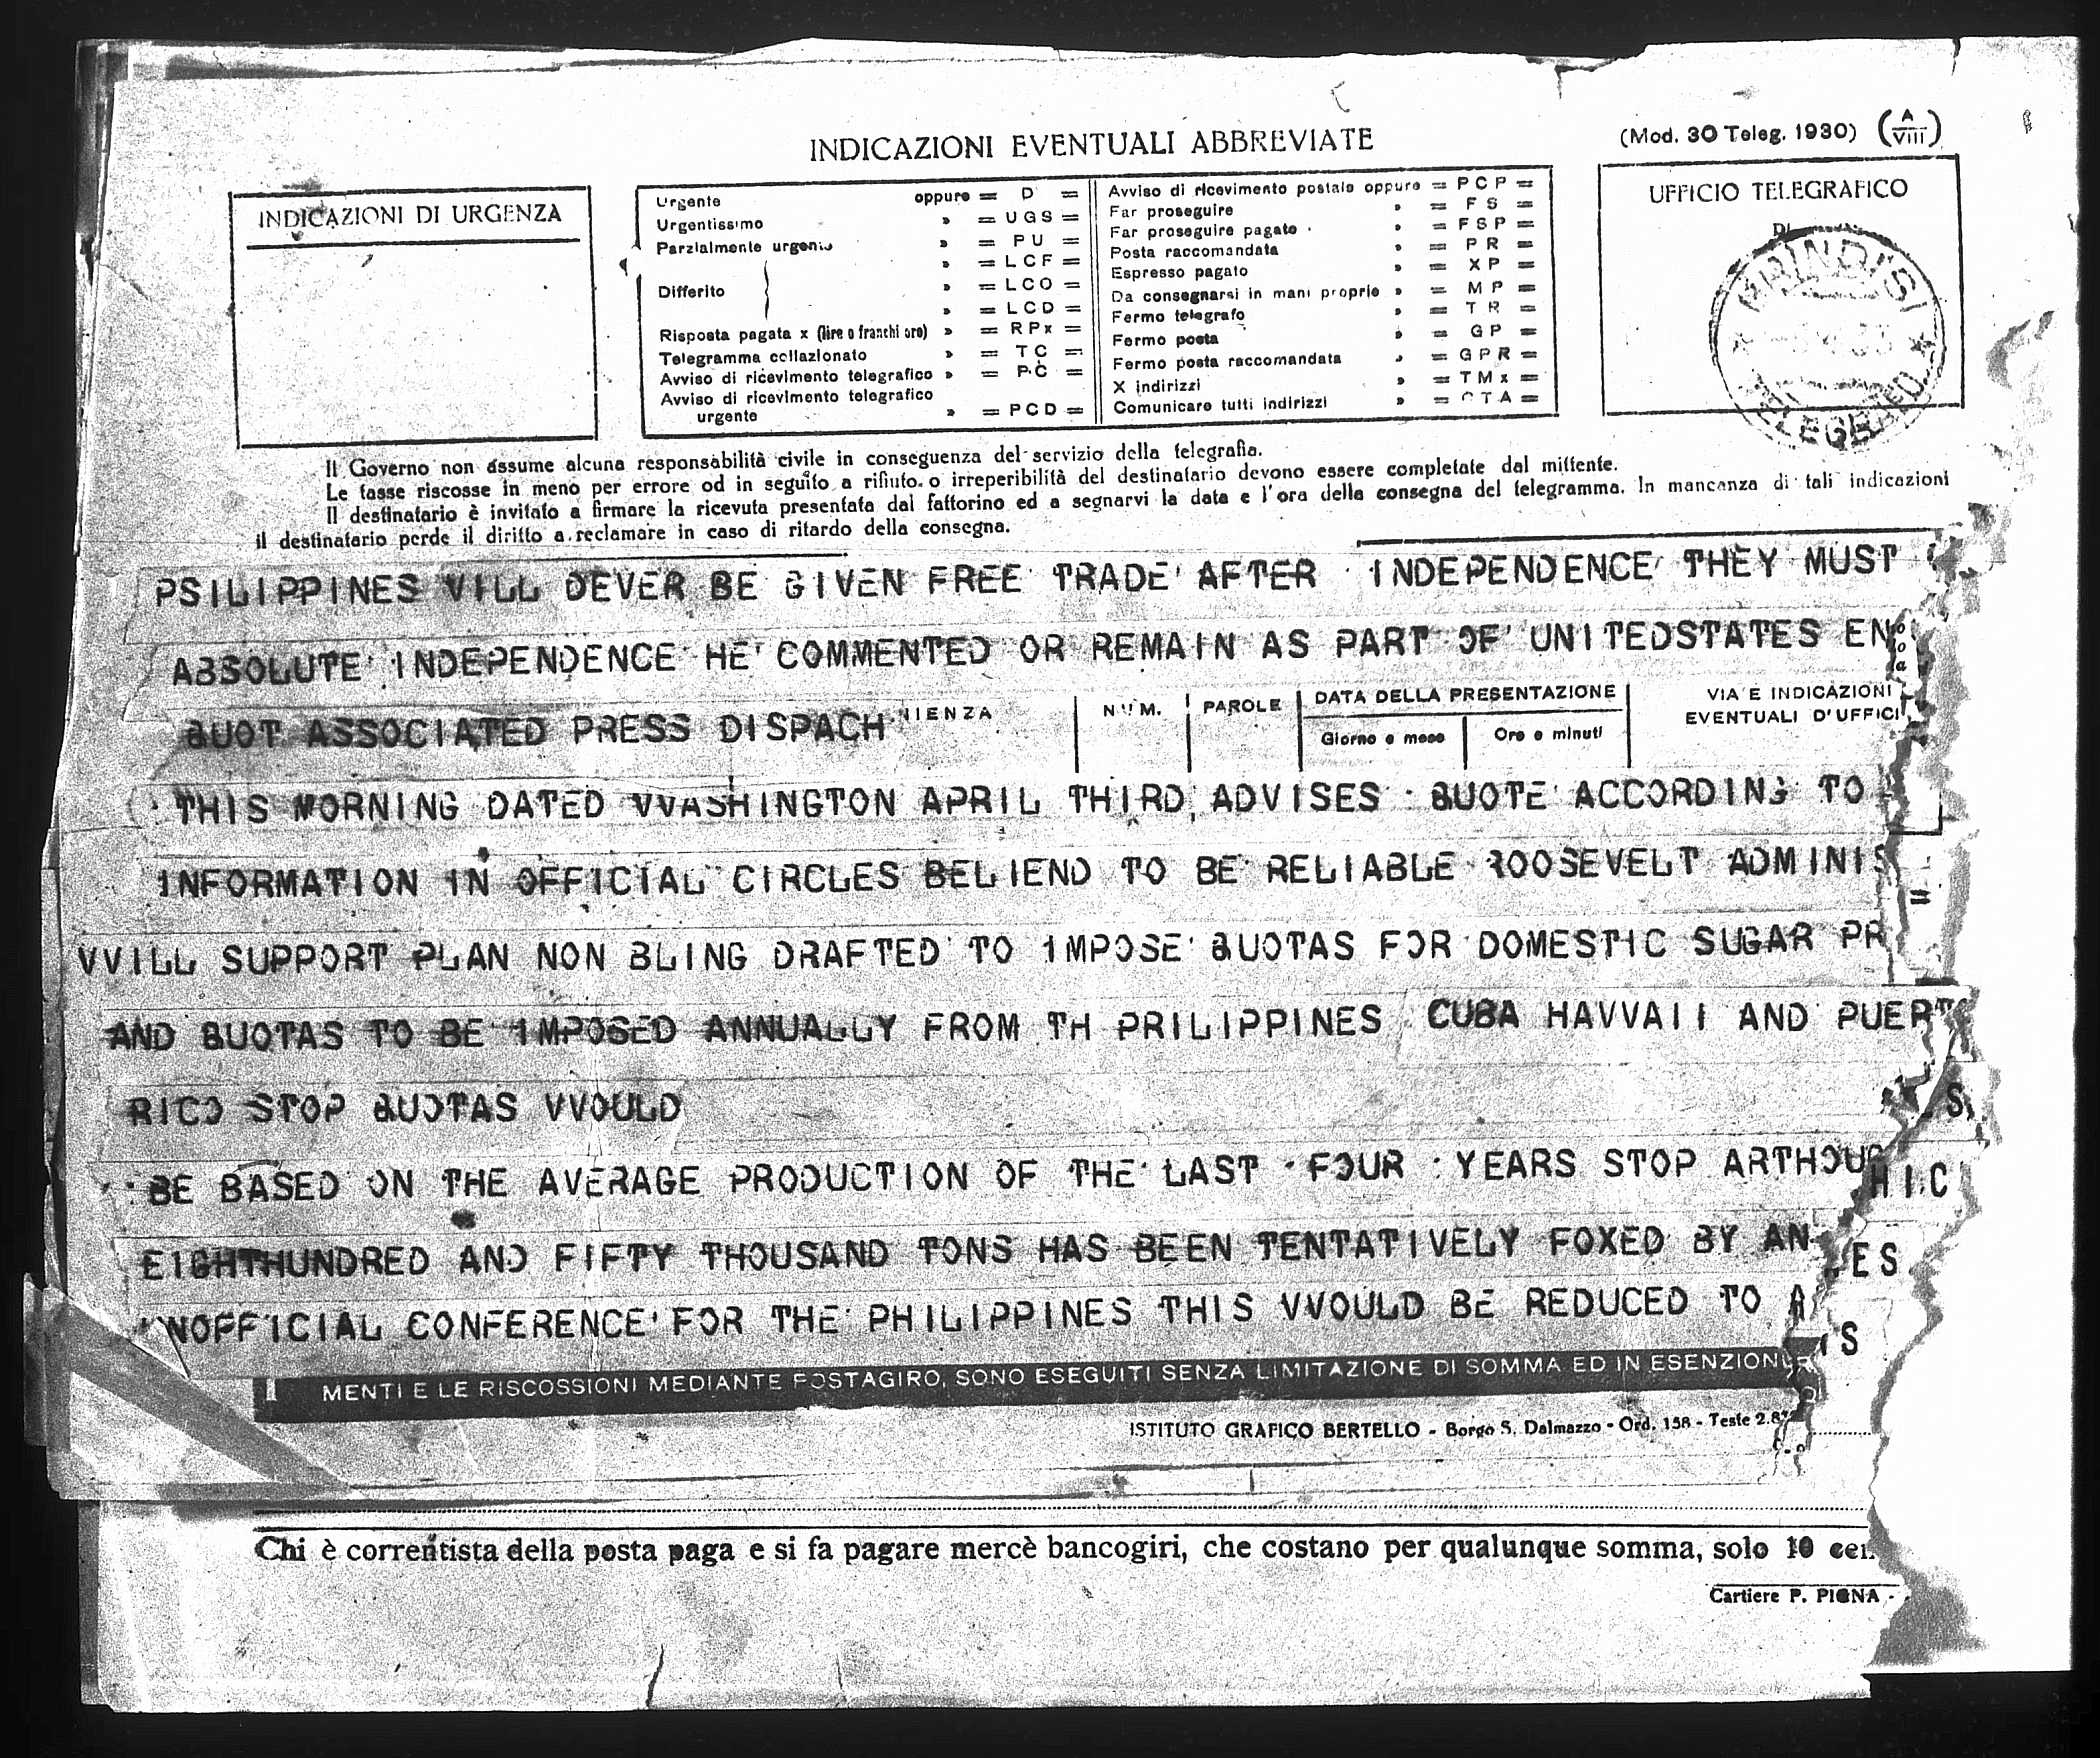 INDICAZIONI EVENTUALI ABBREVIATE
(Mod. 30 Teleg. 1930) (A/VIII)
INDICAZIONI DI URGENZA
Urgente oppure = D =
Urgentissimo » = UGS =
Parzialmente urgente » = PU =
» = LCF =
Differito » = LCO =
» = LCD =
Risposta pagata x (lire o franchi oro) » = RPx =
Telegramma collazionato » = TC =
Avviso di ricevimento telegrafico » = PC =
Avviso di ricevimento telegrafico
urgente » = PCD =
Avviso di ricevimento postale oppure = PCP =
Far proseguire » = FS =
Far proseguire pagato » = FSP =
Posta raccomandata » = PR =
Espresso pagato » = XP =
Da consegnarsi in mani proprie » = MP =
Fermo telegrafo » = TR =
Fermo posta » = GP =
Fermo posta raccomandata » = GPR =
X indirizzi » = TMx =
Comunicare tutti indirizzi » = CTA =
UFFICIO TELEGRAFICO
DI
BRINDISI
Il Governo non assume alcuna responsabilità civile in conseguenza del servizio della telegrafia.
Le tasse riscosse in meno per errore od in seguito a rifiuto o irreperibilità del destinatario devono essere completate dal mittente.
Il destinatario è invitato a firmare la ricevuta presentata dal fattorino ed a segnarvi la data e l'ora della consegna del telegramma. In mancanza di tali indicazioni
il destinatario perde il diritto a reclamare in caso di ritardo della consegna.
PSILIPPINES VILL DEVER BE GIVEN FREE TRADE AFTER INDEPENDENCE THEY MUST
ABSOLUTE INDEPENDENCE HE COMMENTED OR REMAIN AS PART OF UNITEDSTATES EN
QUOT ASSOCIATED PRESS DISPACH
NIENZA NUM. PAROLE DATA DELLA PRESENTAZIONE VIA E INDICAZIONI
Giorno e mese Ore e minuti EVENTUALI D'UFFICI
THIS MORNING DATED VVASHINGTON APRIL THIRD ADVISES QUOTE ACCORDING TO
INFORMATION IN OFFICIAL CIRCLES BELIEND TO BE RELIABLE ROOSEVELT ADMINIS
=
VVILL SUPPORT PLAN NON BLING DRAFTED TO IMPOSE QUOTAS FOR DOMESTIC SUGAR PR
AND QUOTAS TO BE IMPOSED ANNUALLY FROM TH PRILIPPINES CUBA HAVVAII AND PUERTO
RICO STOP QUOTAS VVOULD
S
BE BASED ON THE AVERAGE PRODUCTION OF THE LAST FOUR YEARS STOP ARTHOUG
HIC
EIGHTHUNDRED AND FIFTY THOUSAND TONS HAS BEEN TENTATIVELY FOXED BY AN
ES
UNOFFICIAL CONFERENCE FOR THE PHILIPPINES THIS VVOULD BE REDUCED TO A
S
MENTI E LE RISCOSSIONI MEDIANTE POSTAGIRO, SONO ESEGUITI SENZA LIMITAZIONE DI SOMMA ED IN ESENZION
ISTITUTO GRAFICO BERTELLO - Borgo S. Dalmazzo - Ord. 158 - Teste 2.87
Chi è correntista della posta paga e si fa pagare mercè bancogiri, che costano per qualunque somma, solo 10 cen
Cartiere P. PIGNA -